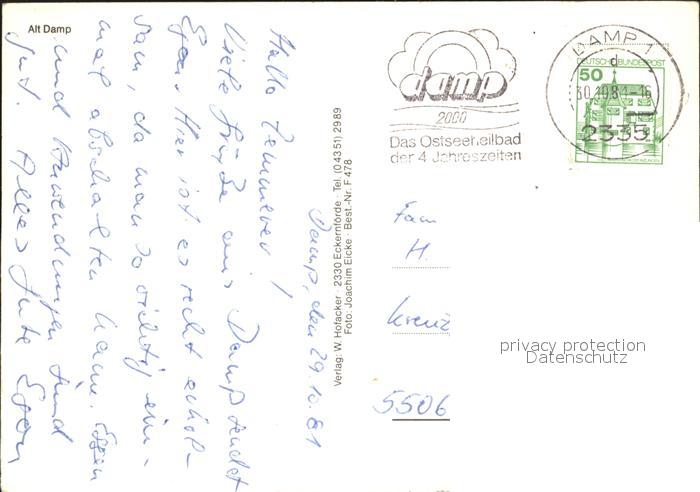 Alt Damp
Damp, den 29.10.81
Hallo
Viele Grüße aus Damp sendet
Egon. Hier ist es recht erhol-
sam, da man so richtig ein-
mal abschalten kann. Essen
und Anwendungen sind
gut. Alles Gute Egon
Verlag: W. Hofacker · 2330 Eckernförde · Tel. (04351) 2989
Foto: Joachim Eicke · Best.-Nr. F 478
damp
2000
Das Ostseeheilbad
der 4 Jahreszeiten
DAMP 1
d
30.10.81-16
2335
DEUTSCHE BUNDESPOST
50
Fam
H.
Kreuz
5506
privacy protection
Datenschutz